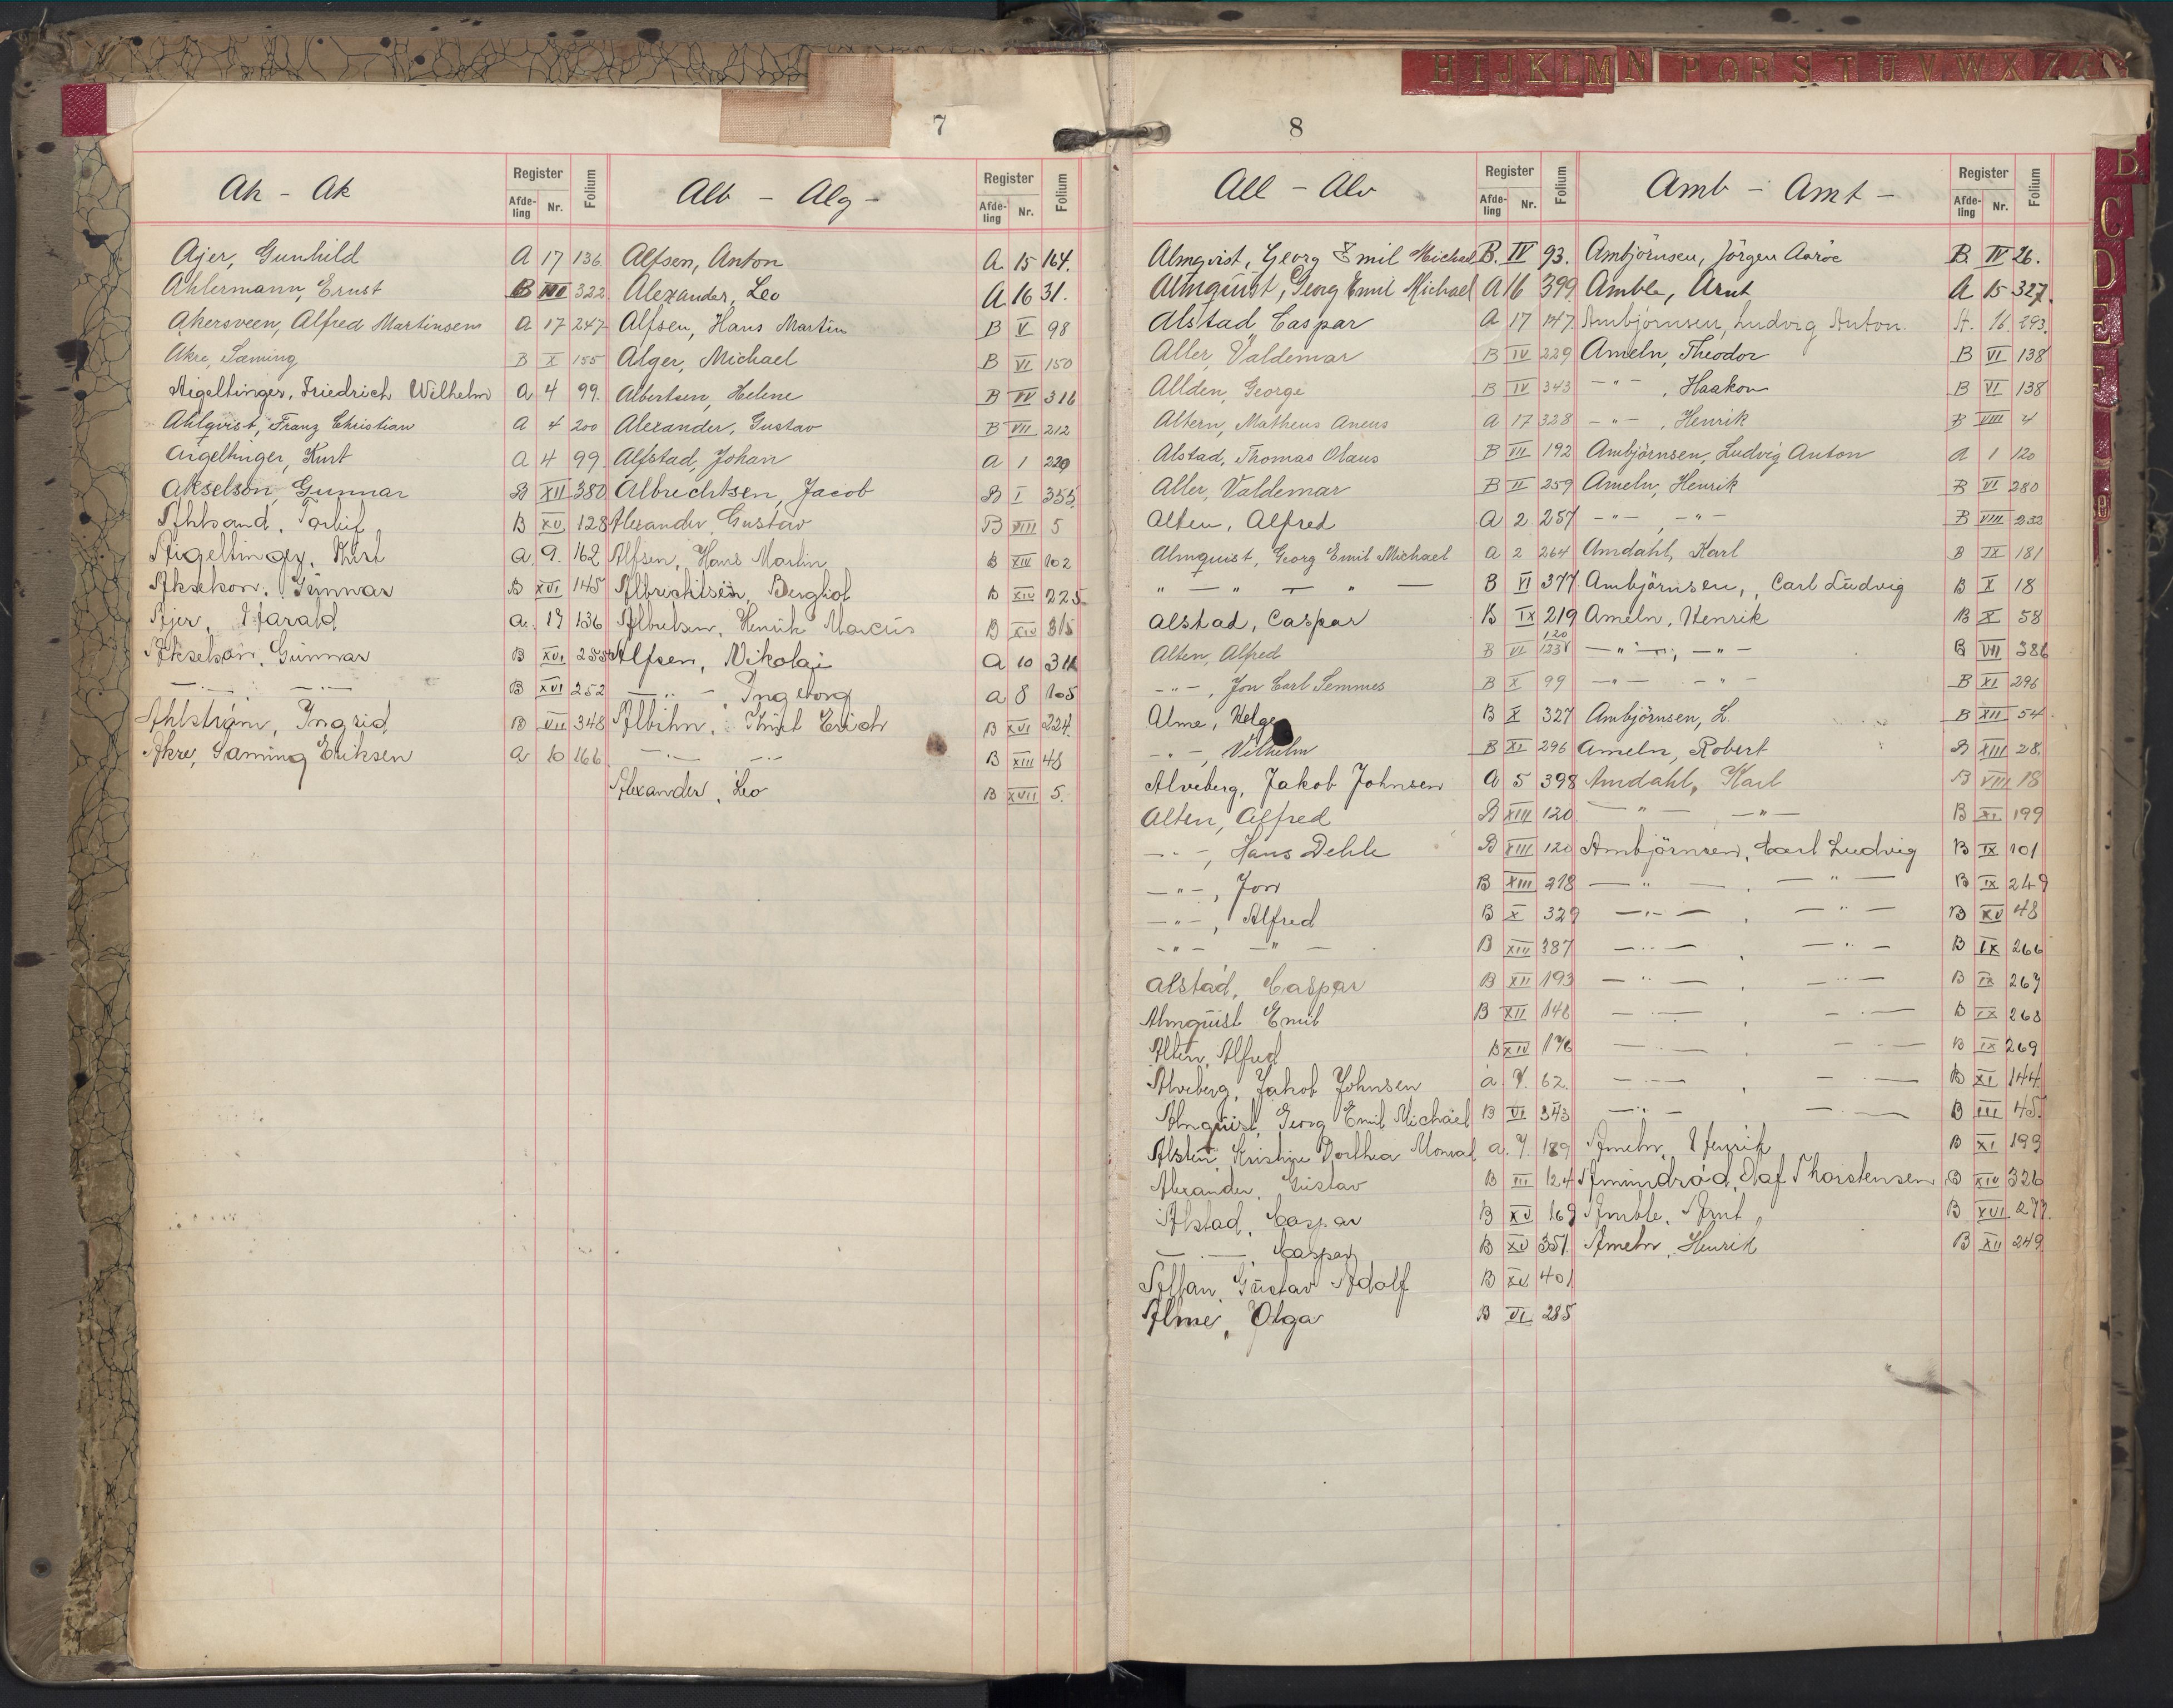 H I J K L M N P Q R S T U V W X Z Æ
B
C
D
E
7
Ah - Ak
Register
Afdeling Nr. Folium
Ajer, Gunhild A 17 136.
Ahlermann, Ernst B VIII 322
Akersveen, Alfred Martinsen A 17 247
Akre, Sæming B X 155
Aigeltinger, Friedrich Wilhelm A 4 99.
Ahlqvist, Franz Christian A 4 200
Aigeltinger, Kurt A 4 99
Akselson, Gunnar B XII 380
Ahlsand, B XV 128
Aigeltinger, Kurt A 9. 162
Akselson, Gunnar B XVI 145
Ajer, Harald A. 17 136
Akselson, Gunnar B XVI 255
— " — — " — B XVI 252
Ahlstrøm, Ingrid B VII 348
Akre, Sæming Eriksen A 10 166
Alb - Alg -
Register
Afdeling Nr. Folium
Alfsen, Anton A. 15 164.
Alexander, Leo A 16 31.
Alfsen, Hans Martin B V 98
Alger, Michael B VI 150
Albertsen, Helene B IV 316
Alexander, Gustav B VII 212
Alfstad, Johan A 1 229
Albrechtsen, Jacob B I 355
Alexander, Gustav B VIII 5
Alfsen, Hans Martin B XIV 102
Albrechtsen, Bergliot B XIV 225
Albretsen, Henrik Marcus B XIV 315
Alfsen, Nikolai A 10 311
— " —, Ingeborg A 8 105
Albihn, Knut Erich B XVI 224.
— " — — " — B XIII 48
Alexander, Leo B XVII 5.
8
All - Alv
Register
Afdeling Nr. Folium
Almqvist, Georg Emil Michael B. IV 93.
Almquist, Georg Emil Michael A 16 399
Alstad Caspar A 17 147
Aller, Valdemar B IV 229
Allden, George B IV 343
Altern, Matheus Aneus A 17 328
Alstad, Thomas Olaus B VII 192
Aller, Valdemar B II 259
Alten, Alfred A 2 257
Almquist, Georg Emil Michael A 2 264
" — " — " — B VI 377
Alstad, Caspar B IX 219
Alten, Alfred B VI 120
— " —, Jon Carl Semmes B X 99
Alme, Helge B X 327
— " —, Vilhelm B XI 296
Alveberg, Jakob Johnsen A 5 398
Alten, Alfred B XIII 120
— " —, Hans Dehle B XIII 120
— " —, Jon B XIII 218
— " —, Alfred B X 329
— " — — " — B XIII 387
Alstad, Caspar B XII 193
Almquist Emil B XII 148
Alten, Alfred B XIV 176
Alveberg, Jakob Johnsen A 7. 62.
Almquist, Georg Emil Michael B VI 343
Alsten, Kristine Dorthea Monrad A. 7. 189
Alexander, Gustav B III 124
Alstad, Caspar B XV 169
— " — Caspar B XV 351
Allan, Gustav Adolf B XV 401
Alme, Olga B VI 285
Amb - Amt -
Register
Afdeling Nr. Folium
Ambjörnsen, Jörgen Aaröe B. IV 26.
Amble, Arnt A 15 327.
Ambjörnsen, Ludvig Anton. A. 16. 293.
Ameln, Theodor B VI 138
— " —, Haakon B VI 138
— " —, Henrik B VIII 4
Ambjörnsen, Ludvig Anton A 1 120
Ameln, Henrik B VI 280
— " —, — " — B VIII 232
Amdahl, Karl B IX 181
Ambjörnsen, Carl Ludvig B X 18
Ameln, Henrik B X 58
— " —, — " — B VII 386
— " — — " — B XI 296
Ambjörnsen, L. B XII 54
Ameln, Robert B XIII 28.
Amdahl, Karl B VIII 18
— " — — " — B XI 199
Ambjörnsen, Carl Ludvig B IX 101
— " —, — " — B IX 249
— " —, — " — B XV 48
— " —, — " — B IX 266
— " —, — " — B IX 267
— " —, — " — B IX 268
— " — — " — B IX 269
— " —, — " — B XI 144
— " — — " — B III 45.
Ameln, Henrik B XI 199
Amundrød, Olaf Thorstensen B XIV 326
Amble, Arnt B XVI 277.
Ameln, Henrik B XII 249